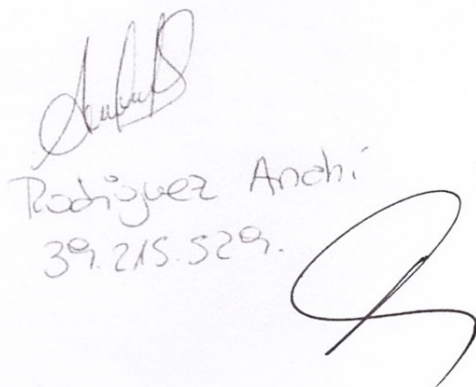 Rodriguez Anahi
39.215.529.